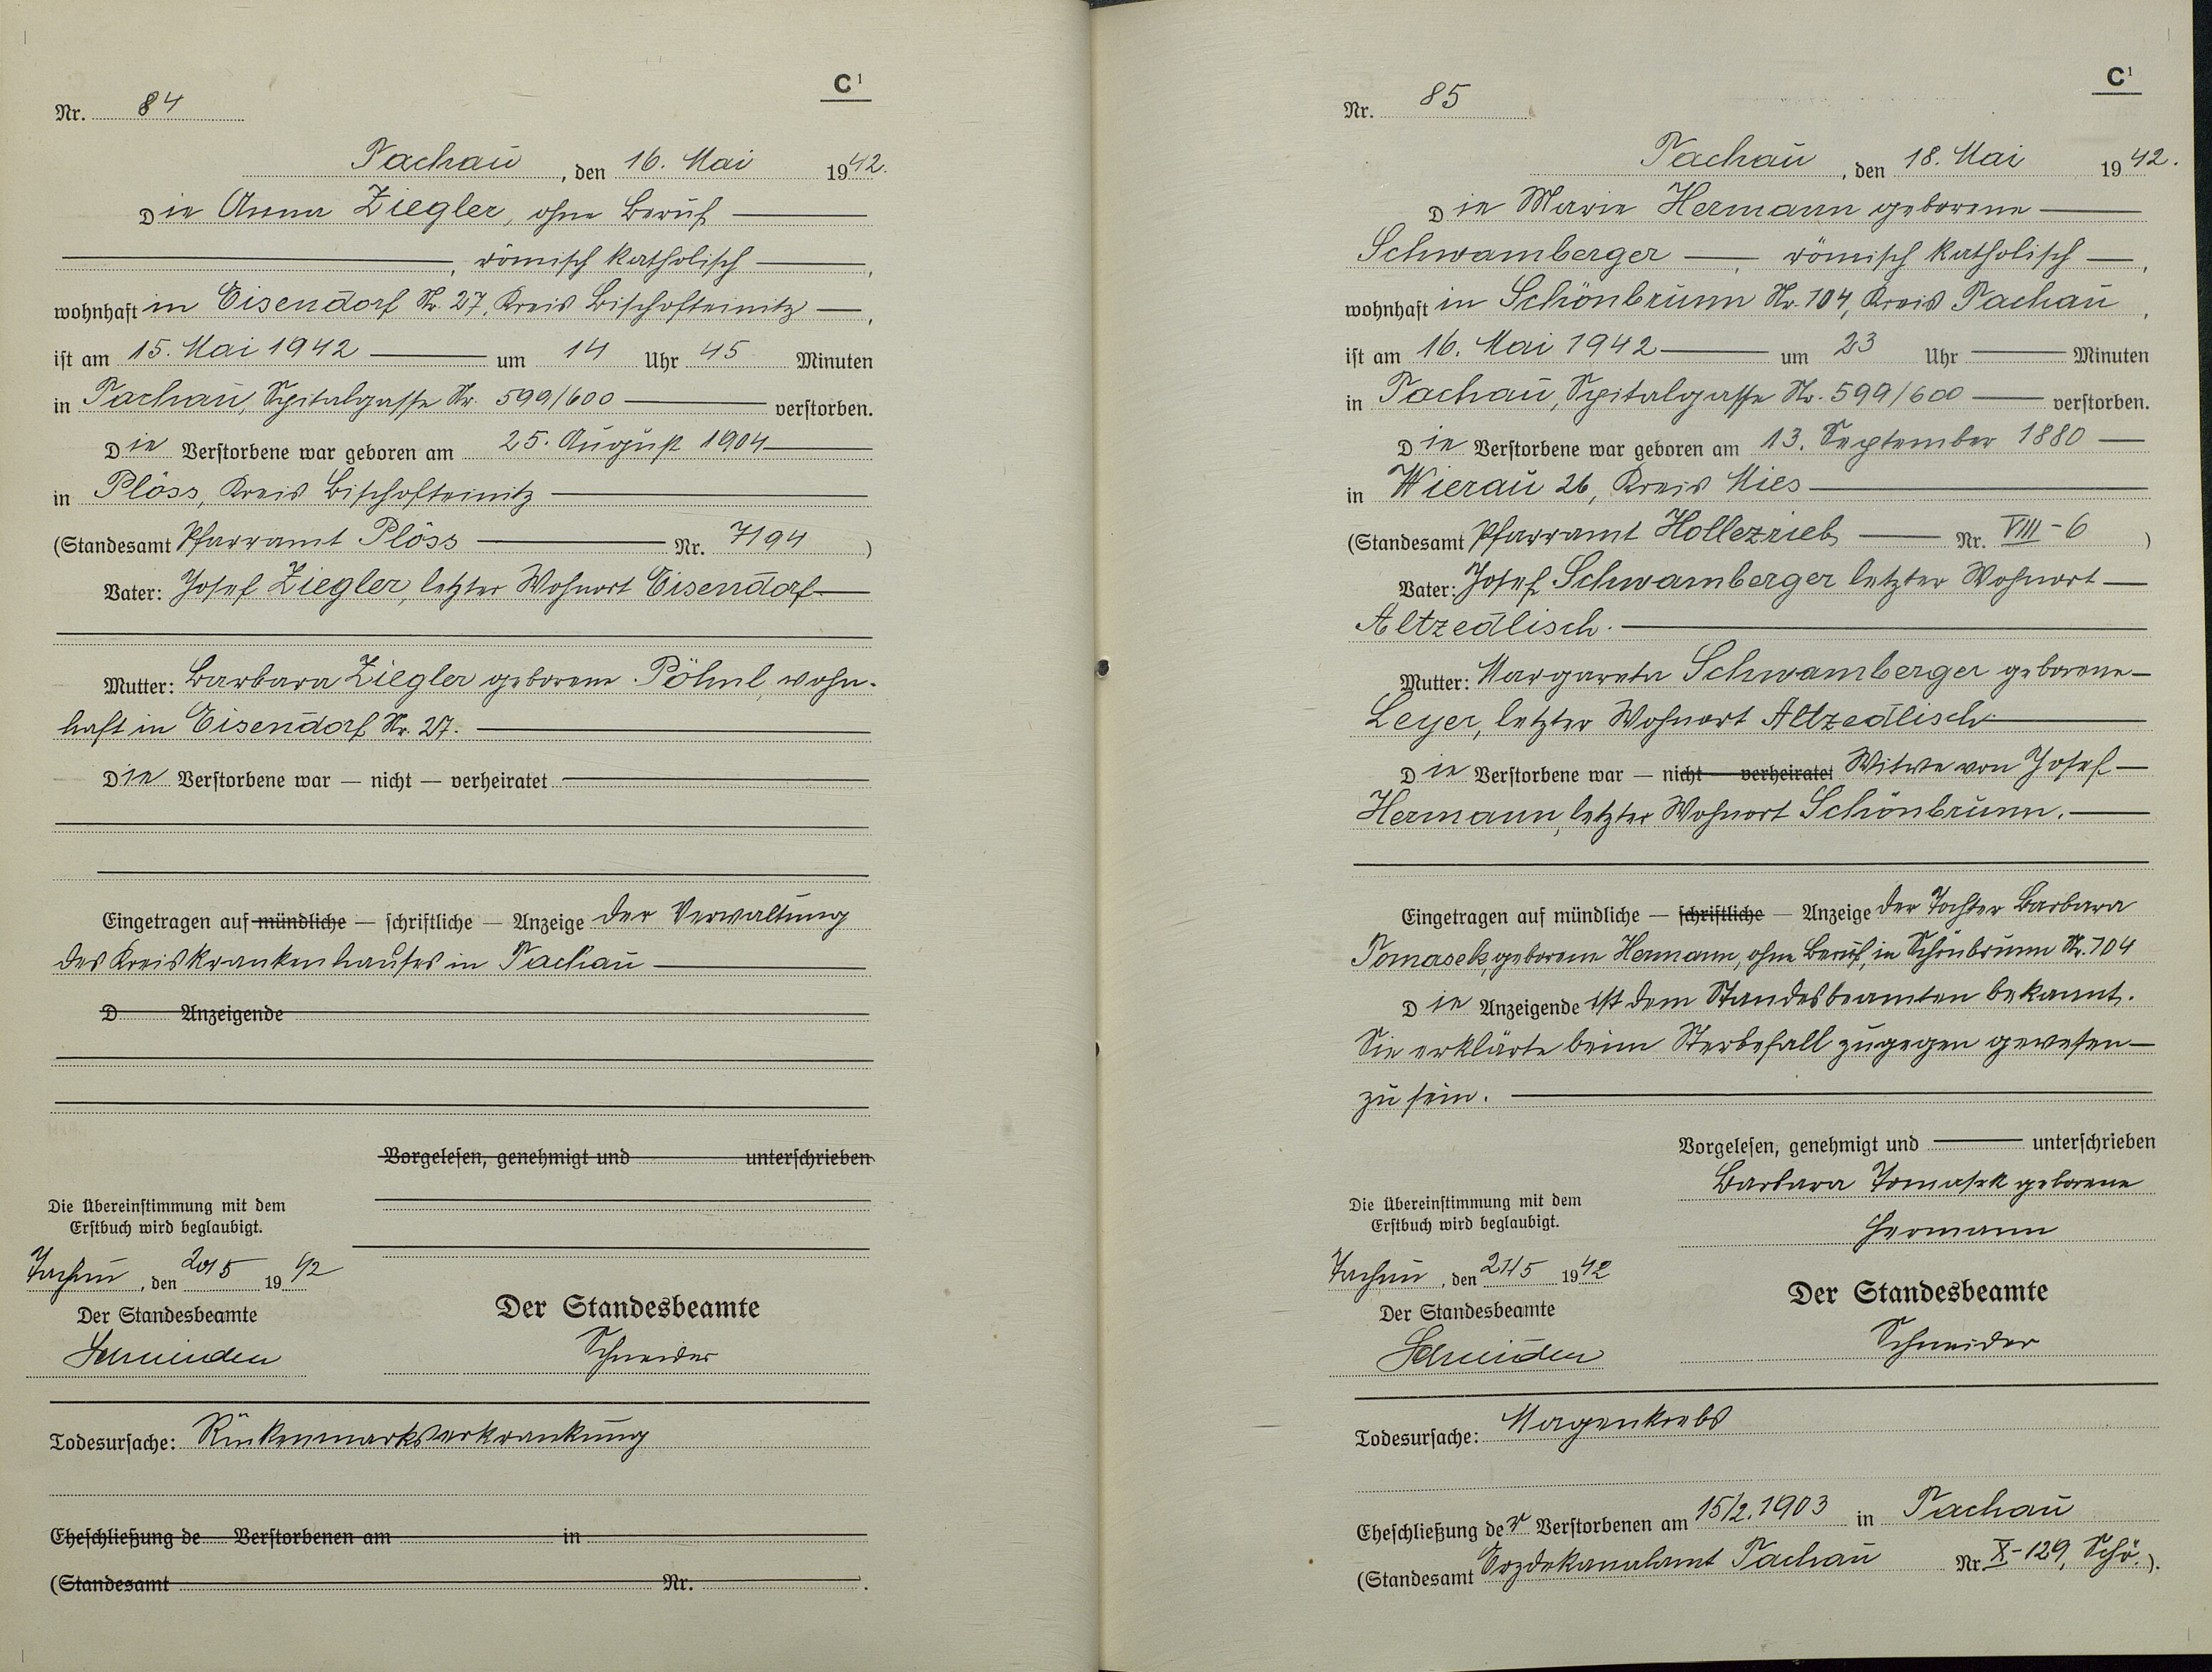 C¹
Nr. 84
Tachau, den 16. Mai 1942.
Die Anna Ziegler, ohne Beruf
römisch katholisch,
wohnhaft in Eisendorf Nr. 27, Kreis Bischofteinitz,
ist am 15. Mai 1942 um 14 Uhr 45 Minuten
in Tachau, Spitalgasse Nr. 599/600 verstorben.
Die Verstorbene war geboren am 25. August 1904
in Plöss, Kreis Bischofteinitz
(Standesamt Pfarramt Plöss Nr. 7194)
Vater: Josef Ziegler, letzter Wohnort Eisendorf
Mutter: Barbara Ziegler geborene Pöhnl, wohn-
haft in Eisendorf Nr. 27.
Die Verstorbene war — nicht — verheiratet
Eingetragen auf mündliche — schriftliche — Anzeige der Verwaltung
des Kreiskrankenhauses in Tachau
D Anzeigende
Vorgelesen, genehmigt und unterschrieben
Die Übereinstimmung mit dem
Erstbuch wird beglaubigt.
Tachau, den 20/5 1942
Der Standesbeamte
Der Standesbeamte
Schneider
Schneider
Todesursache: Rückenmarkserkrankung
Eheschließung de Verstorbenen am in
(Standesamt Nr. .
C¹
Nr. 85
Tachau, den 18. Mai 1942.
Die Marie Hermann geborene
Schwamberger, römisch katholisch,
wohnhaft in Schönbrunn Nr. 104, Kreis Tachau,
ist am 16. Mai 1942 um 23 Uhr Minuten
in Tachau, Spitalgasse Nr. 599/600 verstorben.
Die Verstorbene war geboren am 13. September 1880
in Wierau 26, Kreis Mies
(Standesamt Pfarramt Hollezrieb Nr. VIII-6)
Vater: Josef Schwamberger letzter Wohnort
Altzedlisch.
Mutter: Margareta Schwamberger geborene
Leyer, letzter Wohnort Altzedlisch
Die Verstorbene war — nicht — verheiratet Witwe von Josef
Hermann, letzter Wohnort Schönbrunn.
Eingetragen auf mündliche — schriftliche — Anzeige der Tochter Barbara
Tomasek, geborene Hermann, ohne Beruf, in Schönbrunn Nr. 104
Die Anzeigende ist dem Standesbeamten bekannt.
Sie erklärte beim Sterbefall zugegen gewesen
zu sein.
Vorgelesen, genehmigt und unterschrieben
Barbara Tomasek geborene
Hermann
Die Übereinstimmung mit dem
Erstbuch wird beglaubigt.
Tachau, den 21/5 1942
Der Standesbeamte
Der Standesbeamte
Schneider
Schneider
Todesursache: Magenkrebs
Eheschließung der Verstorbenen am 15/2. 1903 in Tachau
(Standesamt Erzdekanalamt Tachau Nr. X-129, Schö.).